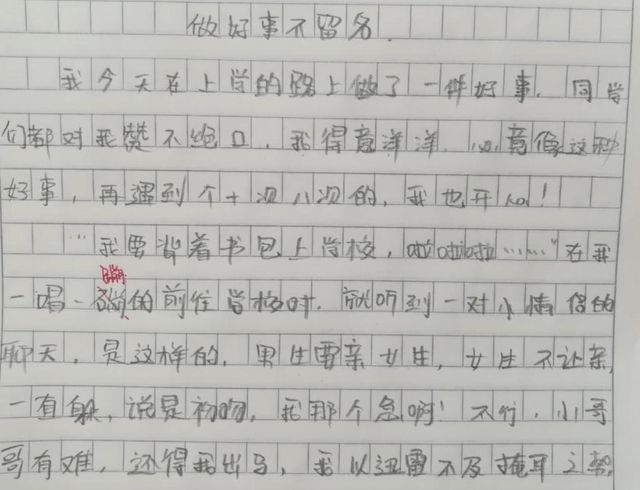 做好事不留名.
我今天在上学的路上做了一件好事.同学
们都对我赞不绝口,我得意洋洋.心竟像这种
好事,再遇到个十次八次的,我也开心!
"我要背着书包上学校,啦啦啦……"在我
一唱一
蹦
的前往学校时.就听到一对小情侣的
聊天,是这样的,男生要亲女生,女生不让亲,
一直躲,说是初吻,我那个急啊!不行,小哥
哥有难,还得我出马,我以迅雷不及掩耳之势,